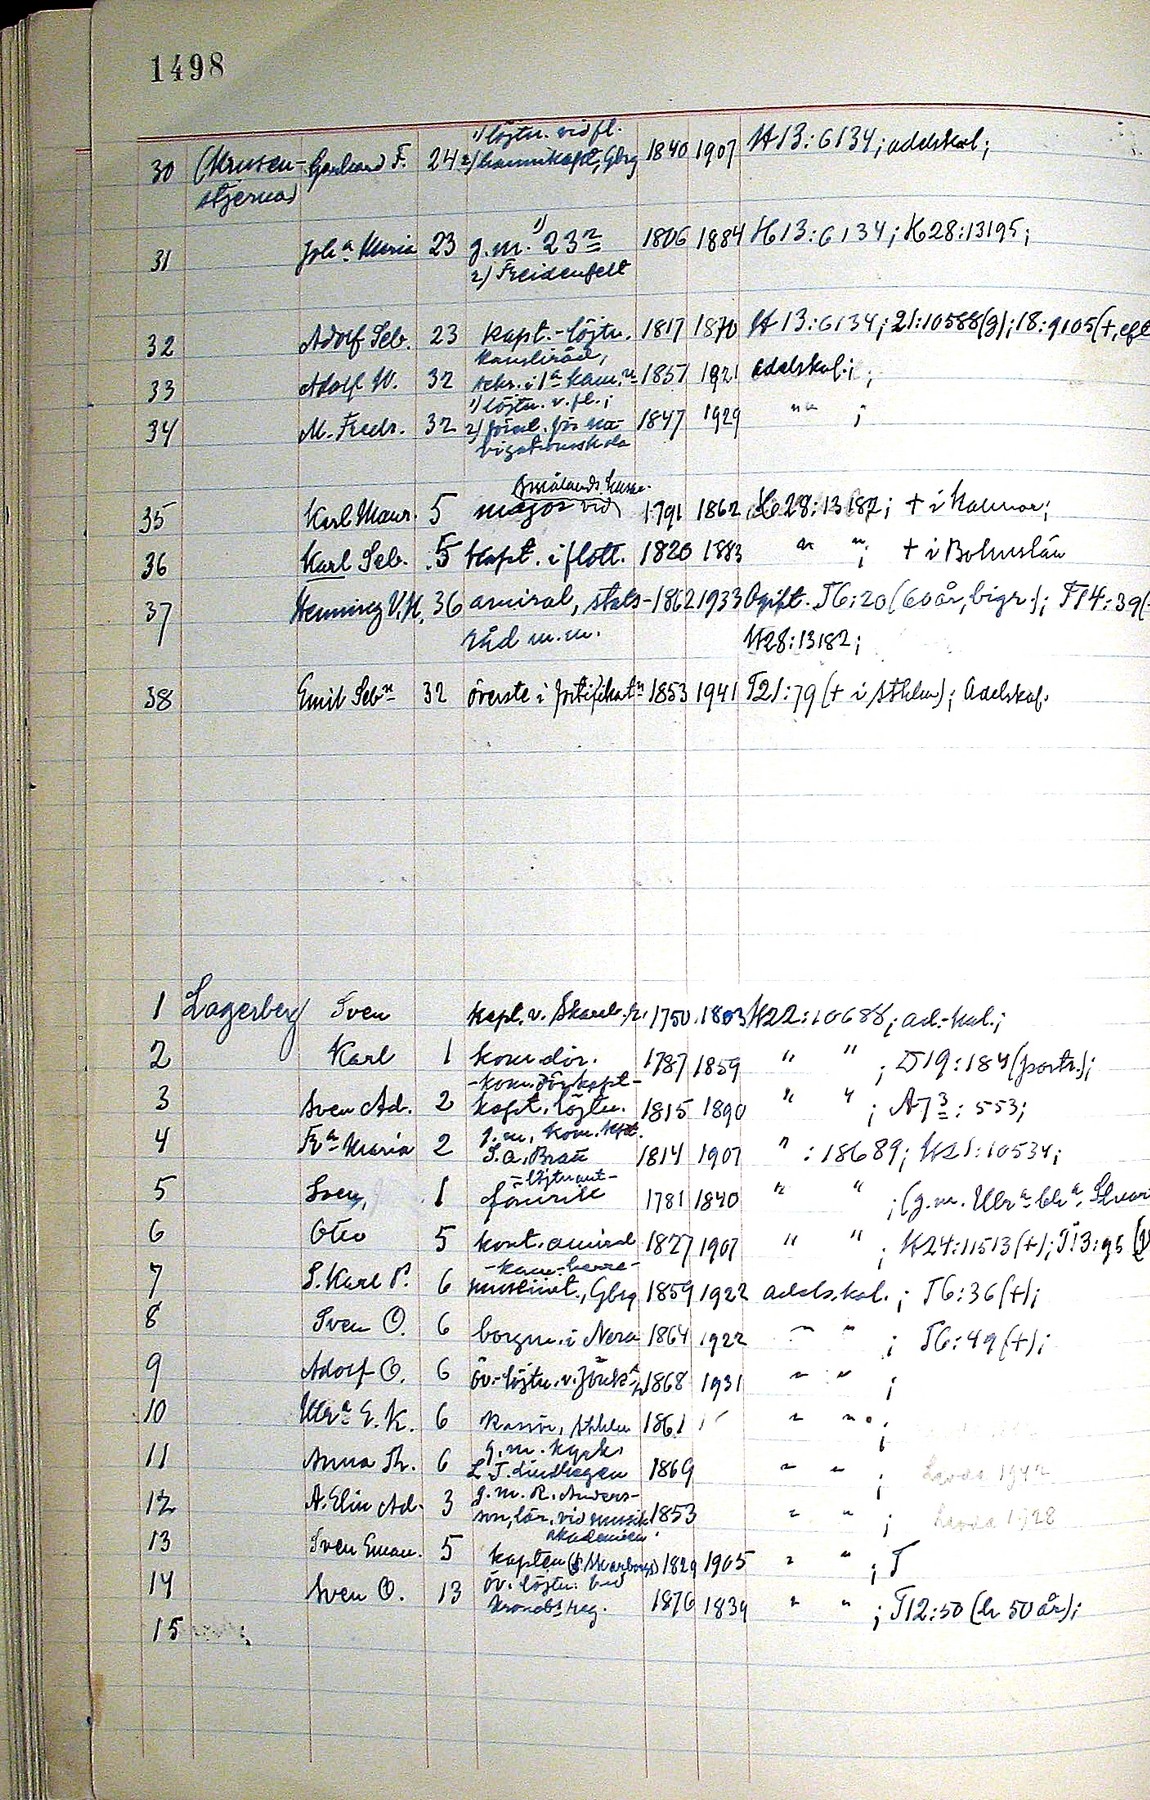 1498
30 (Krusen- Gerhard F. 24 1) löjtn. vid fl. 1840 1907 H13:6134; adelskal;
stjerna) 2) hamnkapt, Gbg
31 Joh:a Maria 23 g.m. 1) 23:n 1806 1884 H13:6134; H28:13195;
2) Freidenfelt
32 Adolf Seb. 23 kapt.-löjtn. 1817 1870 H13:6134; 21:10588(g); 18:9105(+, eft
kansliråd,
33 Adolf W. 32 sekr. i 1:a kam.:n 1857 1921 adelskal.;
1) löjtn. v. fl.;
34 M. Fredr. 32 2) för na- 1847 1929 " " ;
vigationsskola
Smålands hus.
35 Karl Maur. 5 major vid 1791 1862 H28:13182; + i Kalmar;
36 Karl Seb. 5 kapt. i flott. 1820 1883 " " ; + i Bohuslän
37 Henning V.H. 36 amiral, stats- 1862 1933 Ogift. T6:20 (60 år, bigr.); T14:39(
råd m.m. H28:13182;
38 Emil Seb:n 32 överste i fortifikat:n 1853 1941 T21:79 (+ i Sthlm); Adelskal.
1 Lagerberg Sven kapt. v. Skarab. r. 1750 1803 H22:10688; ad.-kal.;
2 Karl 1 komdör. 1787 1859 " " ; D19:184 (portr.);
-kom.dörkapt-
3 Sven Ad. 2 kapt. löjtn. 1815 1890 " " ; A7 3: 553;
4 Fr:a Maria 2 g.m. kom. kpt. 1814 1907 " :18689; H21:10534;
S.a. Bratt
-löjtnant-
5 Sven, 1 fänrik 1781 1840 " " ; (g.m. Ulr:a
6 Otto 5 kont.amiral 1827 1907 " " ; H24:11513 (+); T13:95
-kam-herre-
7 S. Karl P. 6 musiint., Gbg 1859 1922 adels.kal. ; T6:36 (+);
8 Sven O. 6 borgm. i Nora 1864 1922 " " ; T6:49 (+);
9 Adolf O. 6 öv.-löjtn. v. 1868 1931 " " ;
10 Ulr:a E. K. 6 Kassör, Sthlm 1861 " " ;
11 Anna Th. 6 g.m. kyrk 1869 " " ; Levde 1942
L. T. Lindhagen
12 A. Elin Ad. 3 g.m. R. Anders- 1853 " " ; Levde 1928
son, lär. vid musik
akademien
13 Sven Eman. 5 kapten (v. Skarborgs) 1829 1905 " " ; T
14 Sven O. 13 öv. löjtn. vid 1876 1839 " " ; T12:50 (h 50 år);
Kronob:s reg.
15